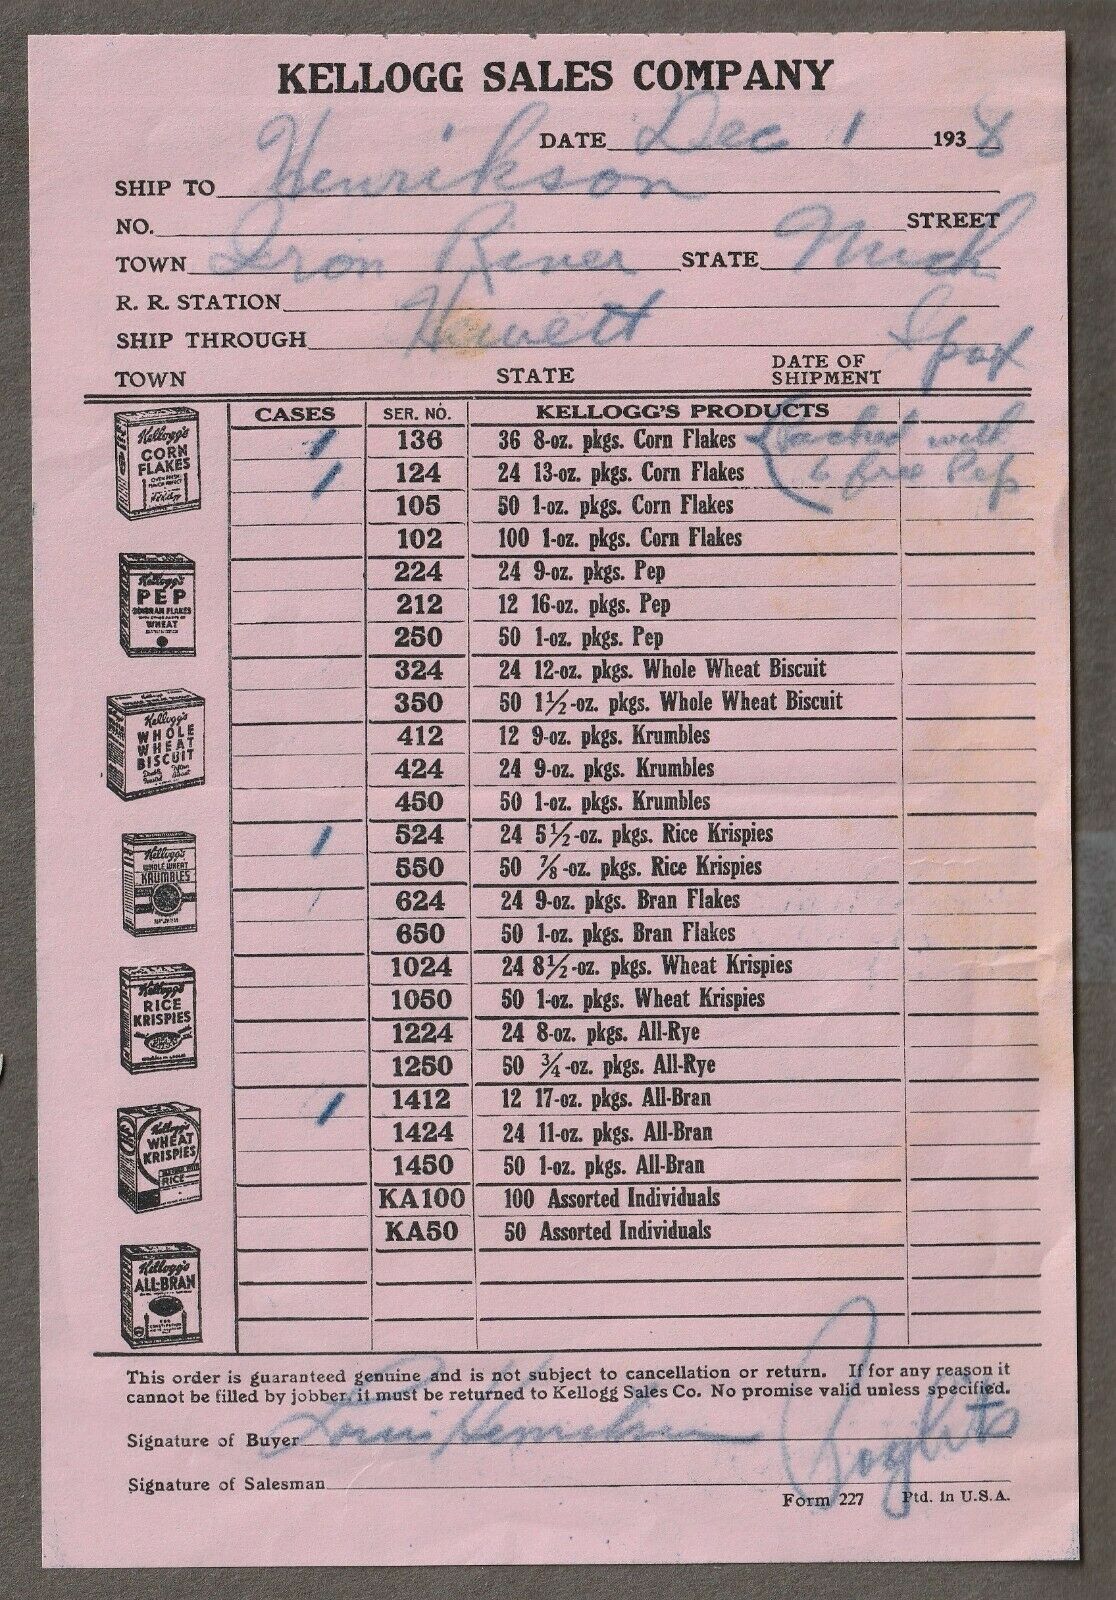 KELLOGG SALES COMPANY
DATE Dec 1 1938
SHIP TO Henrikson
NO. STREET
TOWN Iron River STATE Mich
R. R. STATION
SHIP THROUGH Hewett
TOWN STATE DATE OF SHIPMENT
CASES SER. NO. KELLOGG'S PRODUCTS
1 136 36 8-oz. pkgs. Corn Flakes Packed with
1 124 24 13-oz. pkgs. Corn Flakes 6 free Pep
105 50 1-oz. pkgs. Corn Flakes
102 100 1-oz. pkgs. Corn Flakes
224 24 9-oz. pkgs. Pep
212 12 16-oz. pkgs. Pep
250 50 1-oz. pkgs. Pep
324 24 12-oz. pkgs. Whole Wheat Biscuit
350 50 1½-oz. pkgs. Whole Wheat Biscuit
412 12 9-oz. pkgs. Krumbles
424 24 9-oz. pkgs. Krumbles
450 50 1-oz. pkgs. Krumbles
1 524 24 5½-oz. pkgs. Rice Krispies
550 50 ⅞-oz. pkgs. Rice Krispies
624 24 9-oz. pkgs. Bran Flakes
650 50 1-oz. pkgs. Bran Flakes
1024 24 8½-oz. pkgs. Wheat Krispies
1050 50 1-oz. pkgs. Wheat Krispies
1224 24 8-oz. pkgs. All-Rye
1250 50 ¾-oz. pkgs. All-Rye
1 1412 12 17-oz. pkgs. All-Bran
1424 24 11-oz. pkgs. All-Bran
1450 50 1-oz. pkgs. All-Bran
KA100 100 Assorted Individuals
KA50 50 Assorted Individuals
Kellogg's
CORN
FLAKES
Kellogg's
PEP
WHEAT
Kellogg's
WHOLE
WHEAT
BISCUIT
Kellogg's
WHOLE WHEAT
KRUMBLES
Kellogg's
RICE
KRISPIES
Kellogg's
WHEAT
KRISPIES
RICE
Kellogg's
ALL-BRAN
This order is guaranteed genuine and is not subject to cancellation or return. If for any reason it
cannot be filled by jobber, it must be returned to Kellogg Sales Co. No promise valid unless specified.
Signature of Buyer
Signature of Salesman
Form 227 Ptd. in U.S.A.